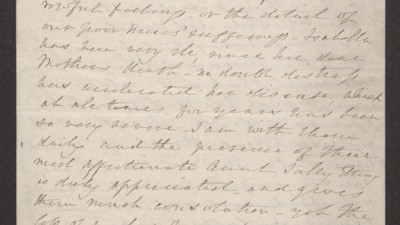 feelings or the detail of
our poor niece's sufferings. Isabella
has been very ill, since her dear
Mothers death - no doubt distress
has accelerated her disease which
at all times for years has been
so very severe. I am with them
daily and the presence of their
most affectionate Aunt Sally
is duly appreciated and gives
them much consolation - yet the